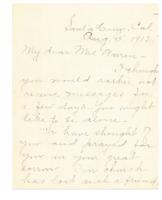 Santa Cruz, Cal.
Aug. 5" 1912.
My dear Mrs. Warren -
I thought
you would rather not
receive messages for
a few days. You might
like to be alone.
We have thought of
you and prayed for
you in your great
sorrow. Our church
has lost such a friend,